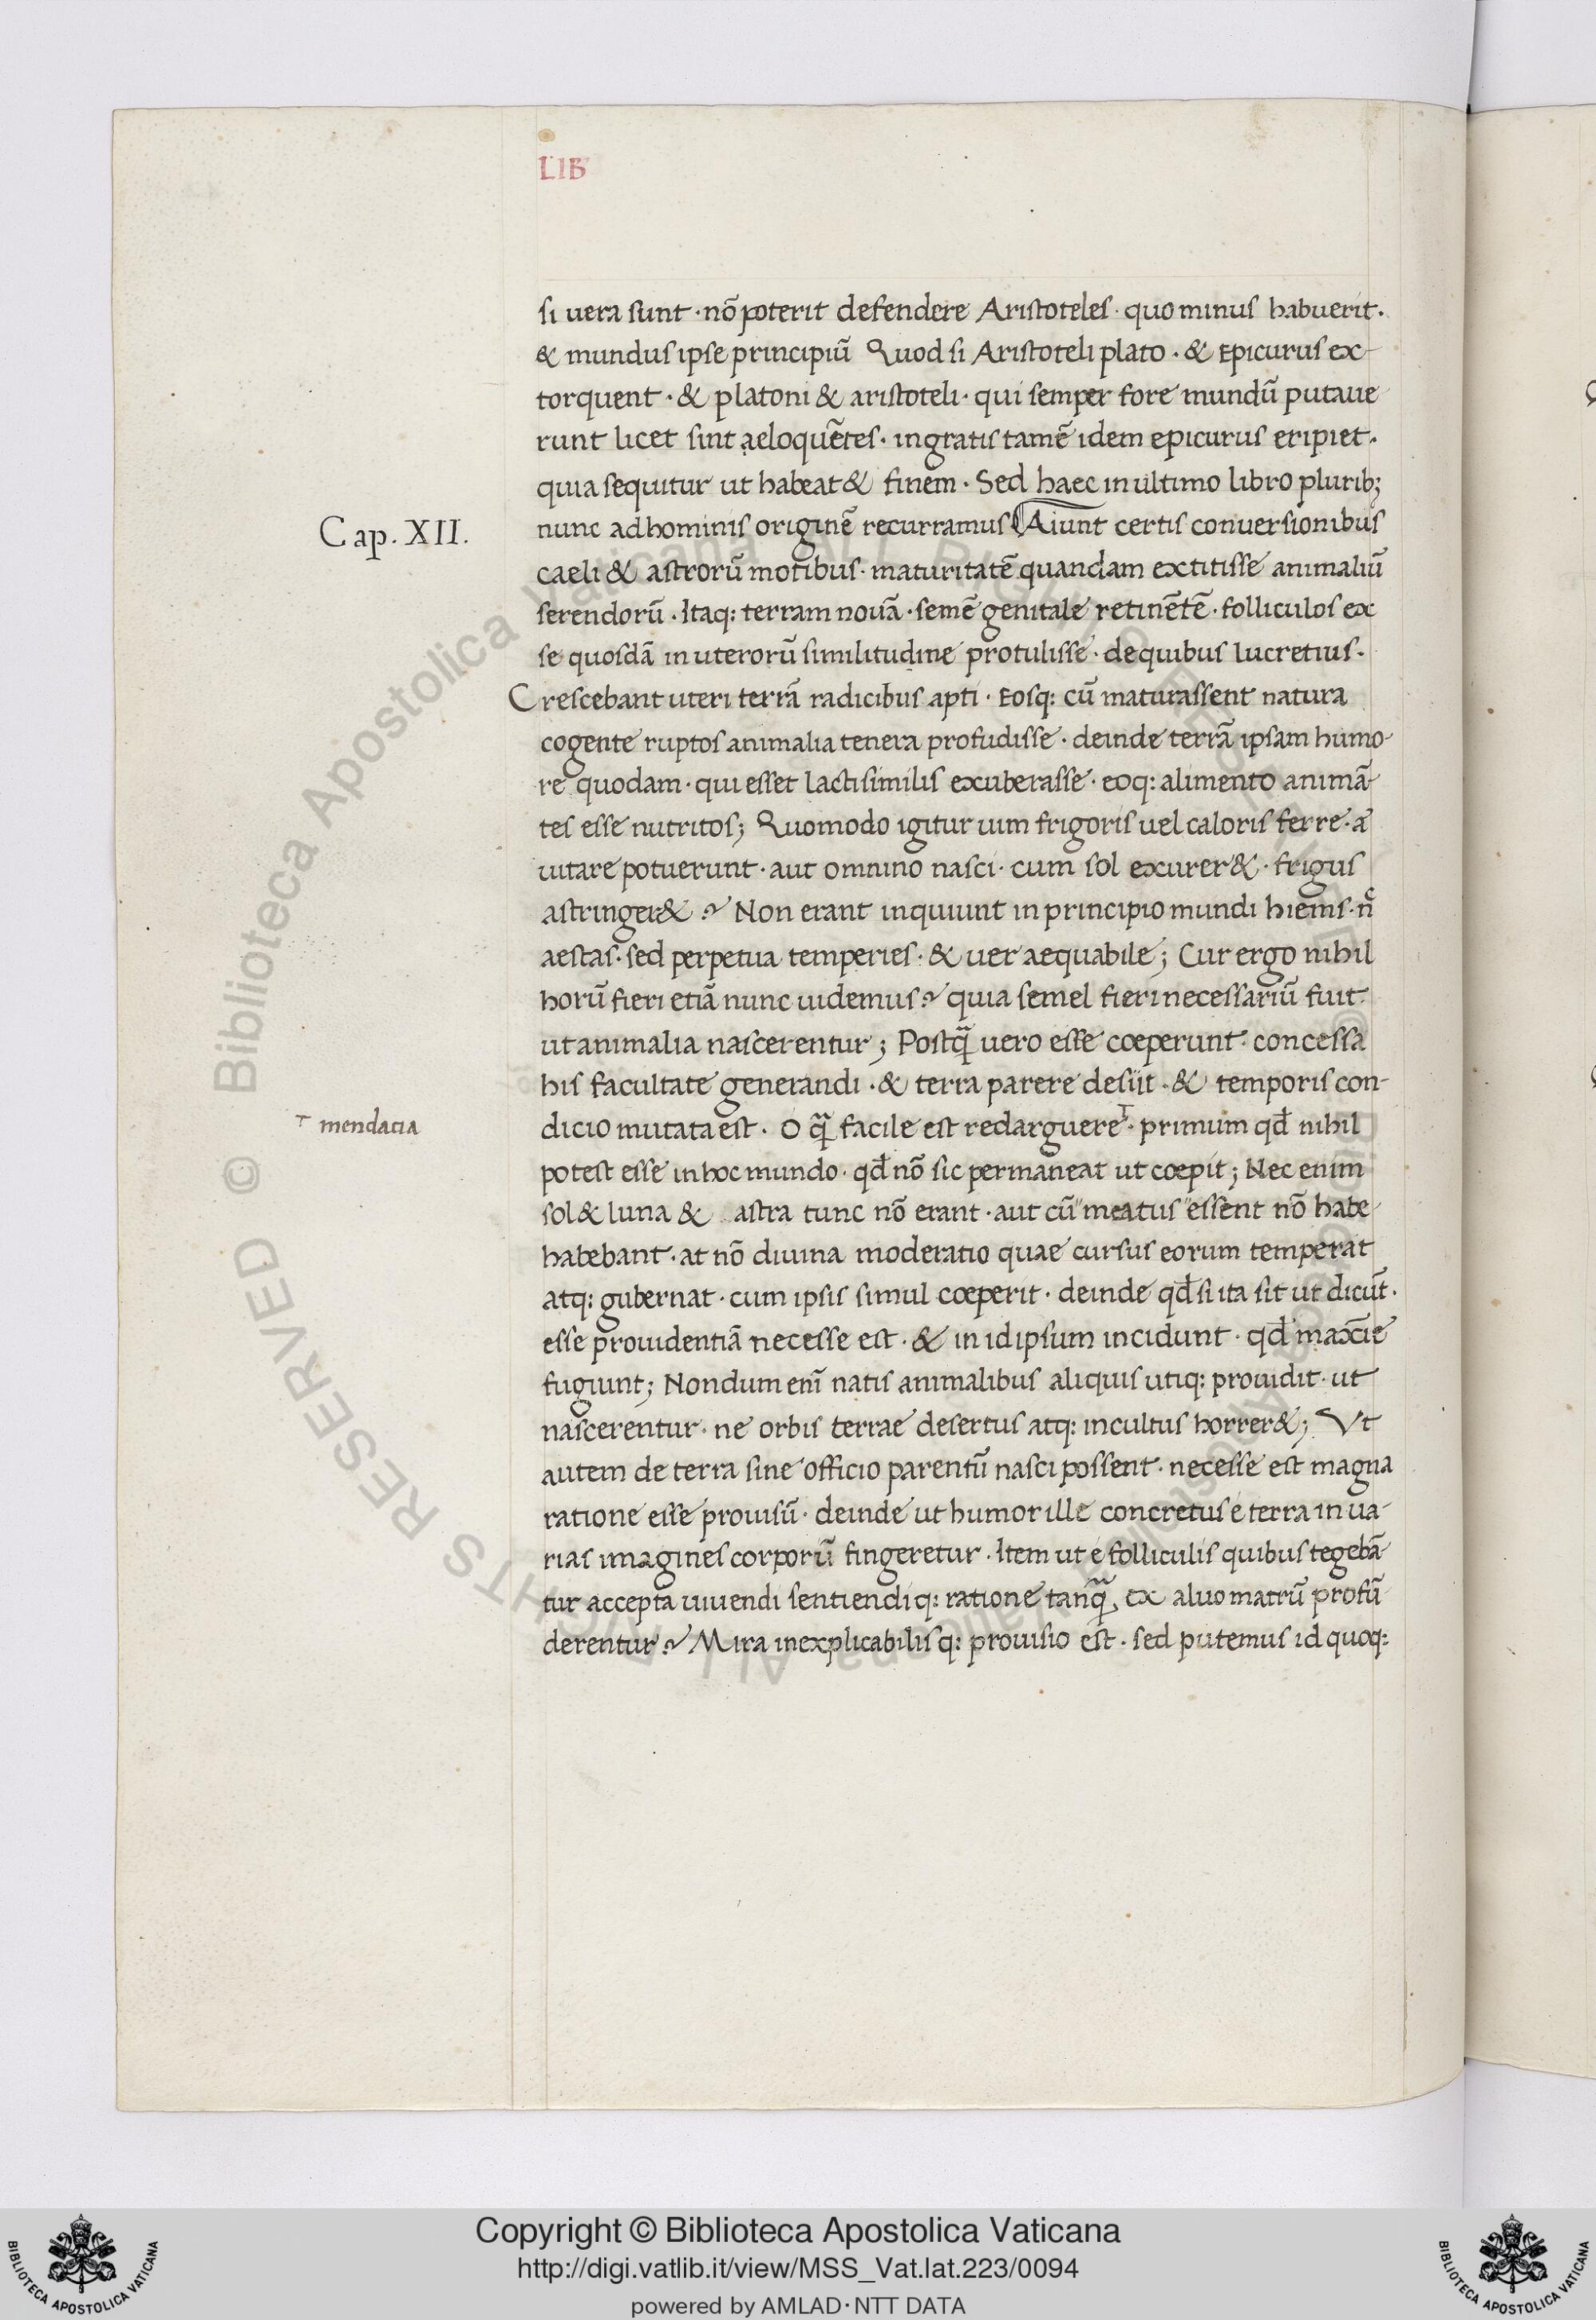 LIB
si uera sunt · nō poterit defendere Aristoteles · quo minus habuerit ·
& mundus ipse principiū Quod si Aristoteli plato · & Epicurus ex-
torquent · & platoni & aristoteli · qui semper fore mundū putaue
runt licet sint aeloquētes · ingratis tamē idem epicurus eripiet ·
quia sequitur ut habeat & finem · Sed haec in ultimo libro plurib;
Cap. XII.
nunc ad hominis originē recurramus Aiunt certis conuersionibus
caeli & astrorū motibus · maturitatē quandam extitisse animaliū
serendorū · Itaq: terram nouā · semē genitale retinētē · folliculos ex
se quosdā in uterorū similitudine protulisse · de quibus lucretius ·
Crescebant uteri terrā radicibus apti · Eosq: cū maturassent natura
cogente ruptos animalia tenera profudisse · deinde terrā ipsam humo-
re quodam · qui esset lacti similis exuberasse · eoq: alimento animā-
tes esse nutritos; Quomodo igitur uim frigoris uel caloris ferre · a
uitare potuerunt · aut omnino nasci · cum sol exurer& · frigus
astringer& ? Non erant inquiunt in principio mundi hiems · n̄
aestas · sed perpetua temperies · & uer aequabile; Cur ergo nihil
horū fieri etiā nunc uidemus ? quia semel fieri necessariū fuit ·
ut animalia nascerentur; Postq̄ uero esse coeperunt · concessa
his facultate generandi · & terra parere desiit · & temporis con-
mendacia
dicio mutata est · O q̄ facile est redarguere · primum qd̄ nihil
potest esse in hoc mundo · qd̄ nō sic permaneat ut coepit; Nec enim
sol & luna & astra tunc nō erant · aut cū meatus essent nō habe-
habebant · at nō diuina moderatio quae cursus eorum temperat
atq: gubernat · cum ipsis simul coeperit · deinde qd̄ si ita sit ut dicūt ·
esse prouidentiā necesse est · & in id ipsum incidunt · qd̄ maxīe
fugiunt; Nondum enī natis animalibus aliquis utiq: prouidit · ut
nascerentur · ne orbis terrae desertus atq: incultus horrer&; Vt
autem de terra sine officio parentū nasci possent · necesse est magna
ratione esse prouisū · deinde ut humor ille concretus e terra in ua-
rias imagines corporū fingeretur · Item ut e folliculis quibus tegebā-
tur accepta uiuendi sentiendiq: ratione tanq̄ ex aluo matrū profū-
derentur ? Mira inexplicabilisq: prouisio est · sed putemus id quoq:
© Biblioteca Apostolica Vaticana
ALL RIGHTS RESERVED
Copyright © Biblioteca Apostolica Vaticana
http://digi.vatlib.it/view/MSS_Vat.lat.223/0094
powered by AMLAD·NTT DATA
BIBLIOTECA APOSTOLICA VATICANA
BIBLIOTECA APOSTOLICA VATICANA